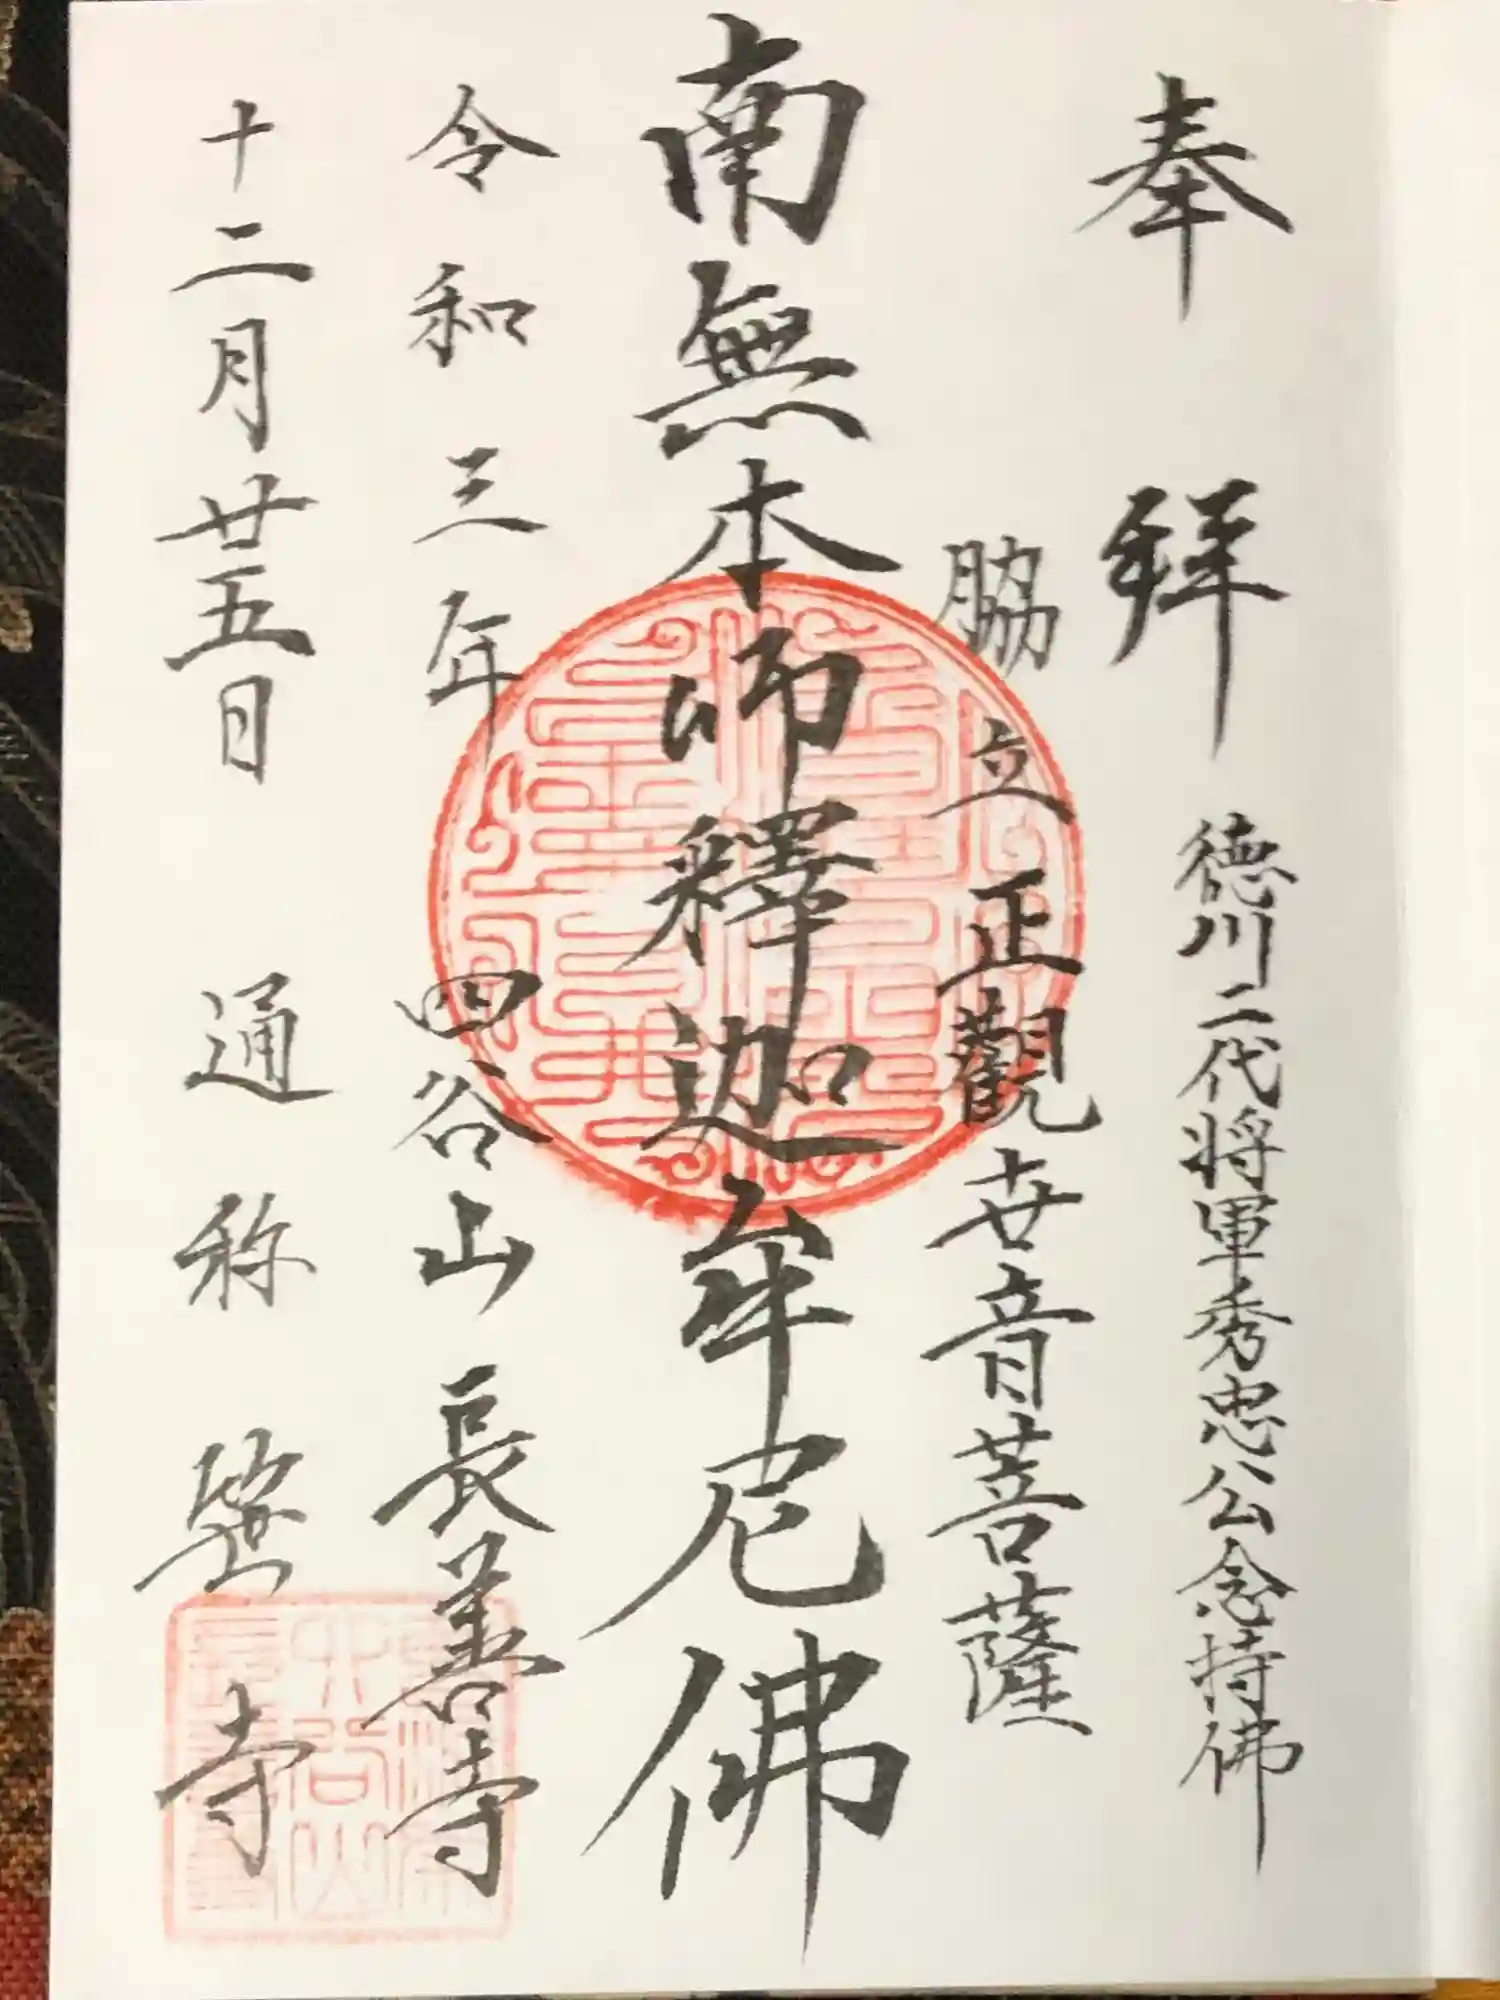 奉拜
徳川二代将軍秀忠公念持佛
脇立正觀世音菩薩
南無本師釋迦牟尼佛
令和三年
四谷山長善寺
十二月廿五日
通称笹寺